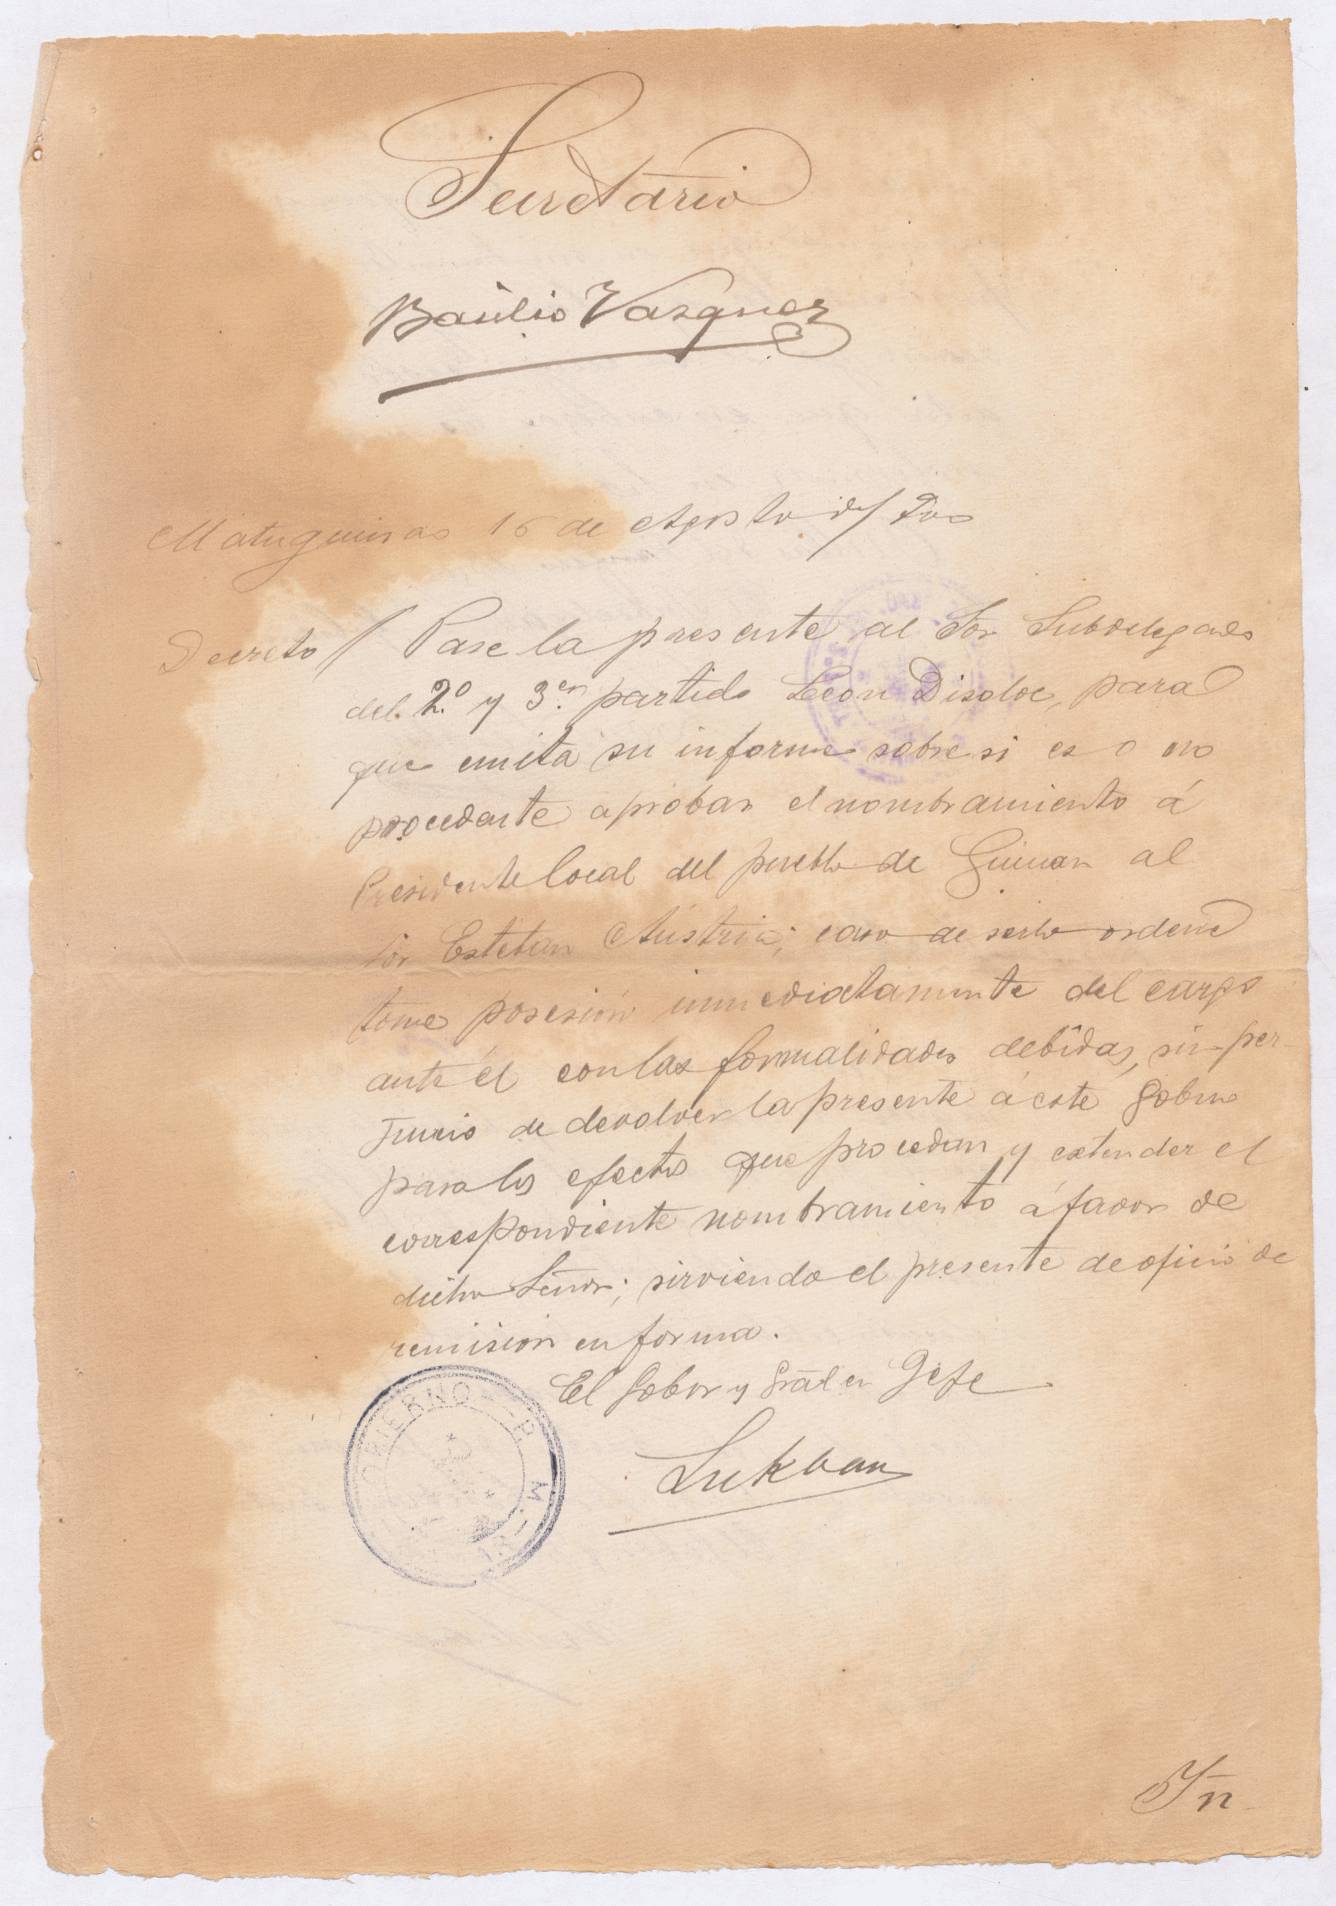 Secretario
Basilio Vasquez
Matuguinao 16 de Agosto de/
Decreto/ Pase la presente al Sor Subdelegado
del 2º y 3er. partido Leon Disoloc, para
que emita su informe sobre si es o no
procedente aprobar el nombramiento á
Presidente local del pueblo de Guiuan al
Sor Esteban Austria; caso de serlo ordene
tome posesión inmediatamente del cargo
ante él con las formalidades debidas, sin per-
juicio de devolver la presente á este Gobno
para los efectos que procedan y extender el
correspondiente nombramiento á favor de
dicho Señor; sirviendo el presente de oficio de
remisión en forma.
El Gobor y Gral en Gefe
Lukban
GOBIERNO P. M.